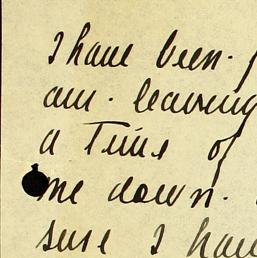 I have been.
am. leaving
a Time of
me down.
sure I have